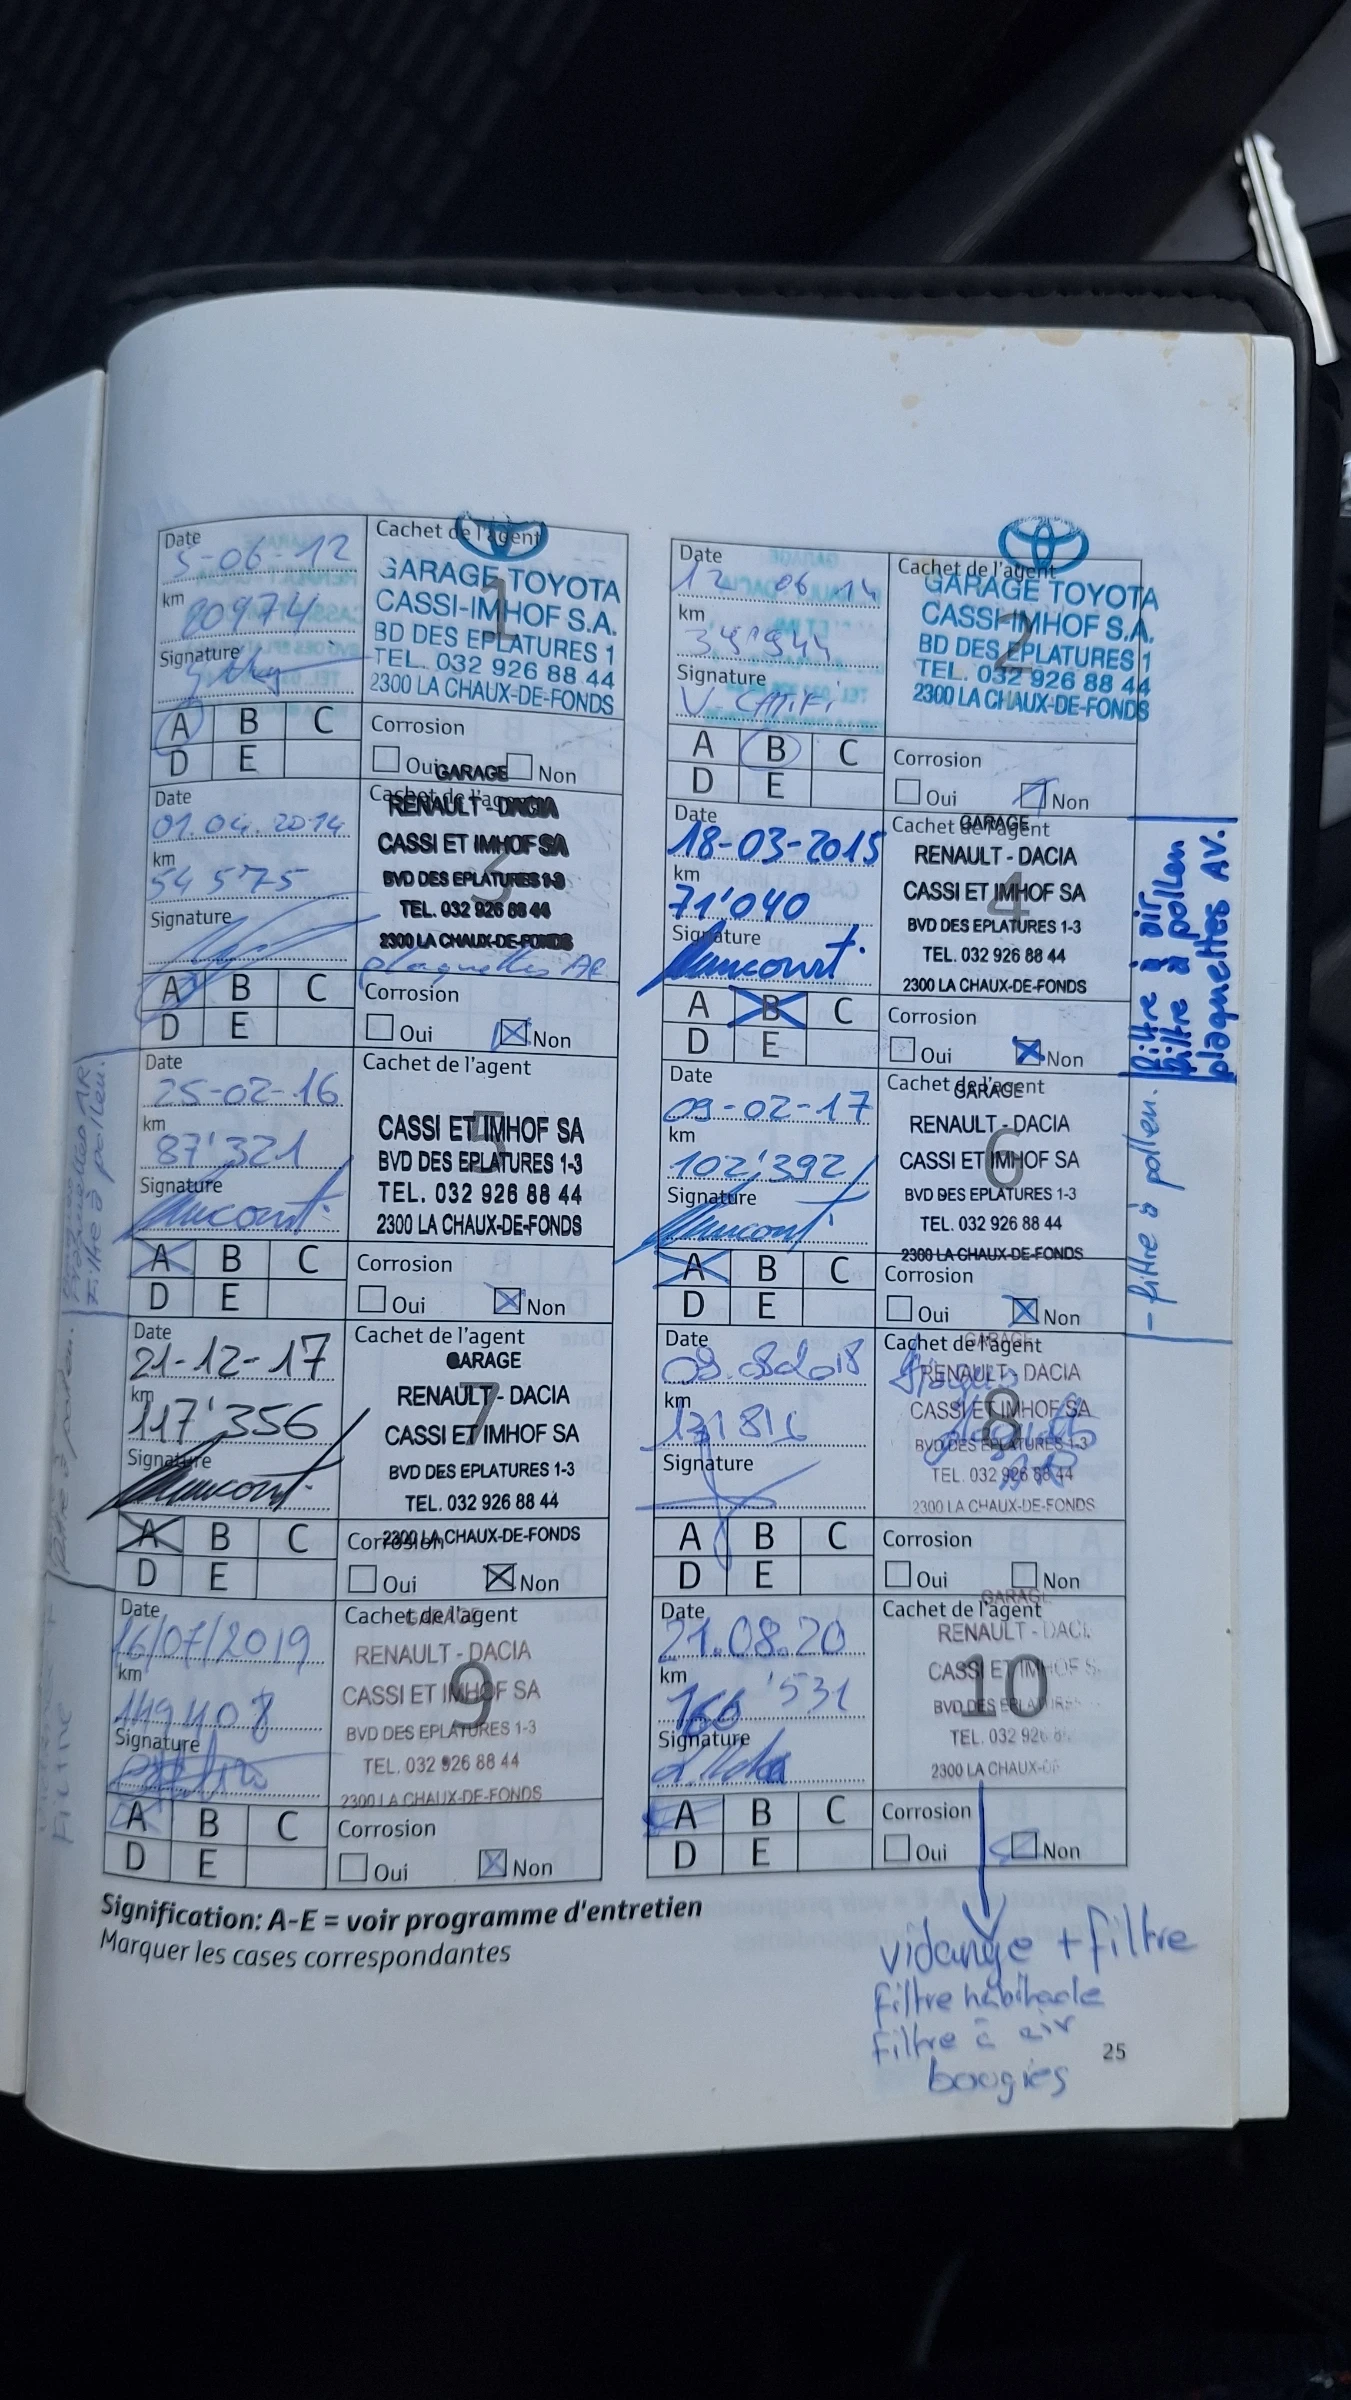 Date
5-06-12
km
20974
Signature
Cachet de l'agent
1
GARAGE TOYOTA
CASSI-IMHOF S.A.
BD DES EPLATURES 1
TEL. 032 926 88 44
2300 LA CHAUX-DE-FONDS
A B C
D E
Corrosion
Oui Non
Date
12 06 14
km
Signature
Cachet de l'agent
2
GARAGE TOYOTA
CASSI-IMHOF S.A.
BD DES EPLATURES 1
TEL. 032 926 88 44
2300 LA CHAUX-DE-FONDS
A B C
D E
Corrosion
Oui Non
Date
01.04.2014
km
54 575
Signature
Cachet de l'agent
3
GARAGE
RENAULT - DACIA
CASSI ET IMHOF SA
BVD DES EPLATURES 1-3
TEL. 032 926 88 44
2300 LA CHAUX-DE-FONDS
plaquettes AR
A B C
D E
Corrosion
Oui Non
Date
18-03-2015
km
71'040
Signature
Cachet de l'agent
4
GARAGE
RENAULT - DACIA
CASSI ET IMHOF SA
BVD DES EPLATURES 1-3
TEL. 032 926 88 44
2300 LA CHAUX-DE-FONDS
A B C
D E
Corrosion
Oui Non
filtre à air
filtre à pollen
plaquettes AV.
Date
25-02-16
km
87'321
Signature
Cachet de l'agent
5
CASSI ET IMHOF SA
BVD DES EPLATURES 1-3
TEL. 032 926 88 44
2300 LA CHAUX-DE-FONDS
A B C
D E
Corrosion
Oui Non
Filtre à pollen.
Date
09-02-17
km
102'392
Signature
Cachet de l'agent
6
GARAGE
RENAULT - DACIA
CASSI ET IMHOF SA
BVD DES EPLATURES 1-3
TEL. 032 926 88 44
2300 LA CHAUX-DE-FONDS
A B C
D E
Corrosion
Oui Non
- filtre à pollen.
Date
21-12-17
km
117'356
Signature
Cachet de l'agent
7
GARAGE
RENAULT - DACIA
CASSI ET IMHOF SA
BVD DES EPLATURES 1-3
TEL. 032 926 88 44
2300 LA CHAUX-DE-FONDS
A B C
D E
Corrosion
Oui Non
Date
09.08.2018
km
131816
Signature
Cachet de l'agent
8
GARAGE
RENAULT - DACIA
CASSI ET IMHOF SA
BVD DES EPLATURES 1-3
TEL. 032 926 88 44
2300 LA CHAUX-DE-FONDS
A B C
D E
Corrosion
Oui Non
Date
16/07/2019
km
149408
Signature
Cachet de l'agent
9
GARAGE
RENAULT - DACIA
CASSI ET IMHOF SA
BVD DES EPLATURES 1-3
TEL. 032 926 88 44
2300 LA CHAUX-DE-FONDS
A B C
D E
Corrosion
Oui Non
Date
21.08.20
km
166'531
Signature
Cachet de l'agent
10
RENAULT - DACI
CASSI ET IMHOF S
BVD DES EPLATURES
TEL. 032 926 8
2300 LA CHAUX-DE
A B C
D E
Corrosion
Oui Non
Signification: A-E = voir programme d'entretien
Marquer les cases correspondantes
vidange + filtre
filtre habitacle
filtre à air
boogies
25